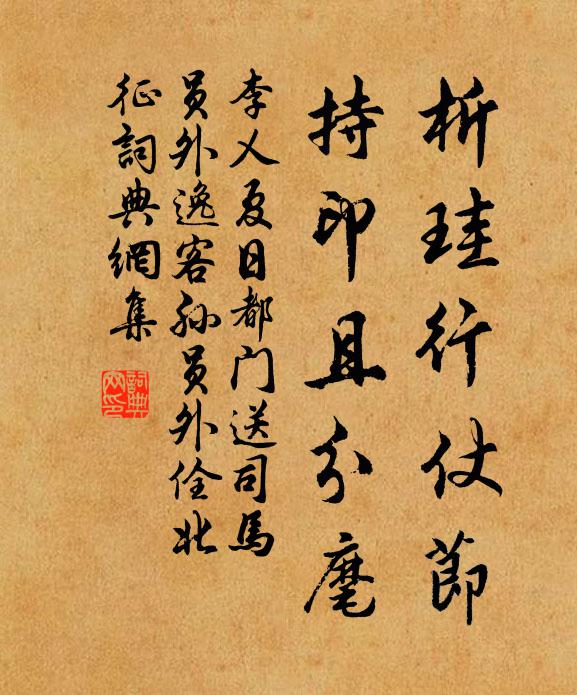 析珪行仗節
持印且分麾
李乂夏日都門送司馬
員外逸客孫員外佺北
征詞典網集
詞典網印